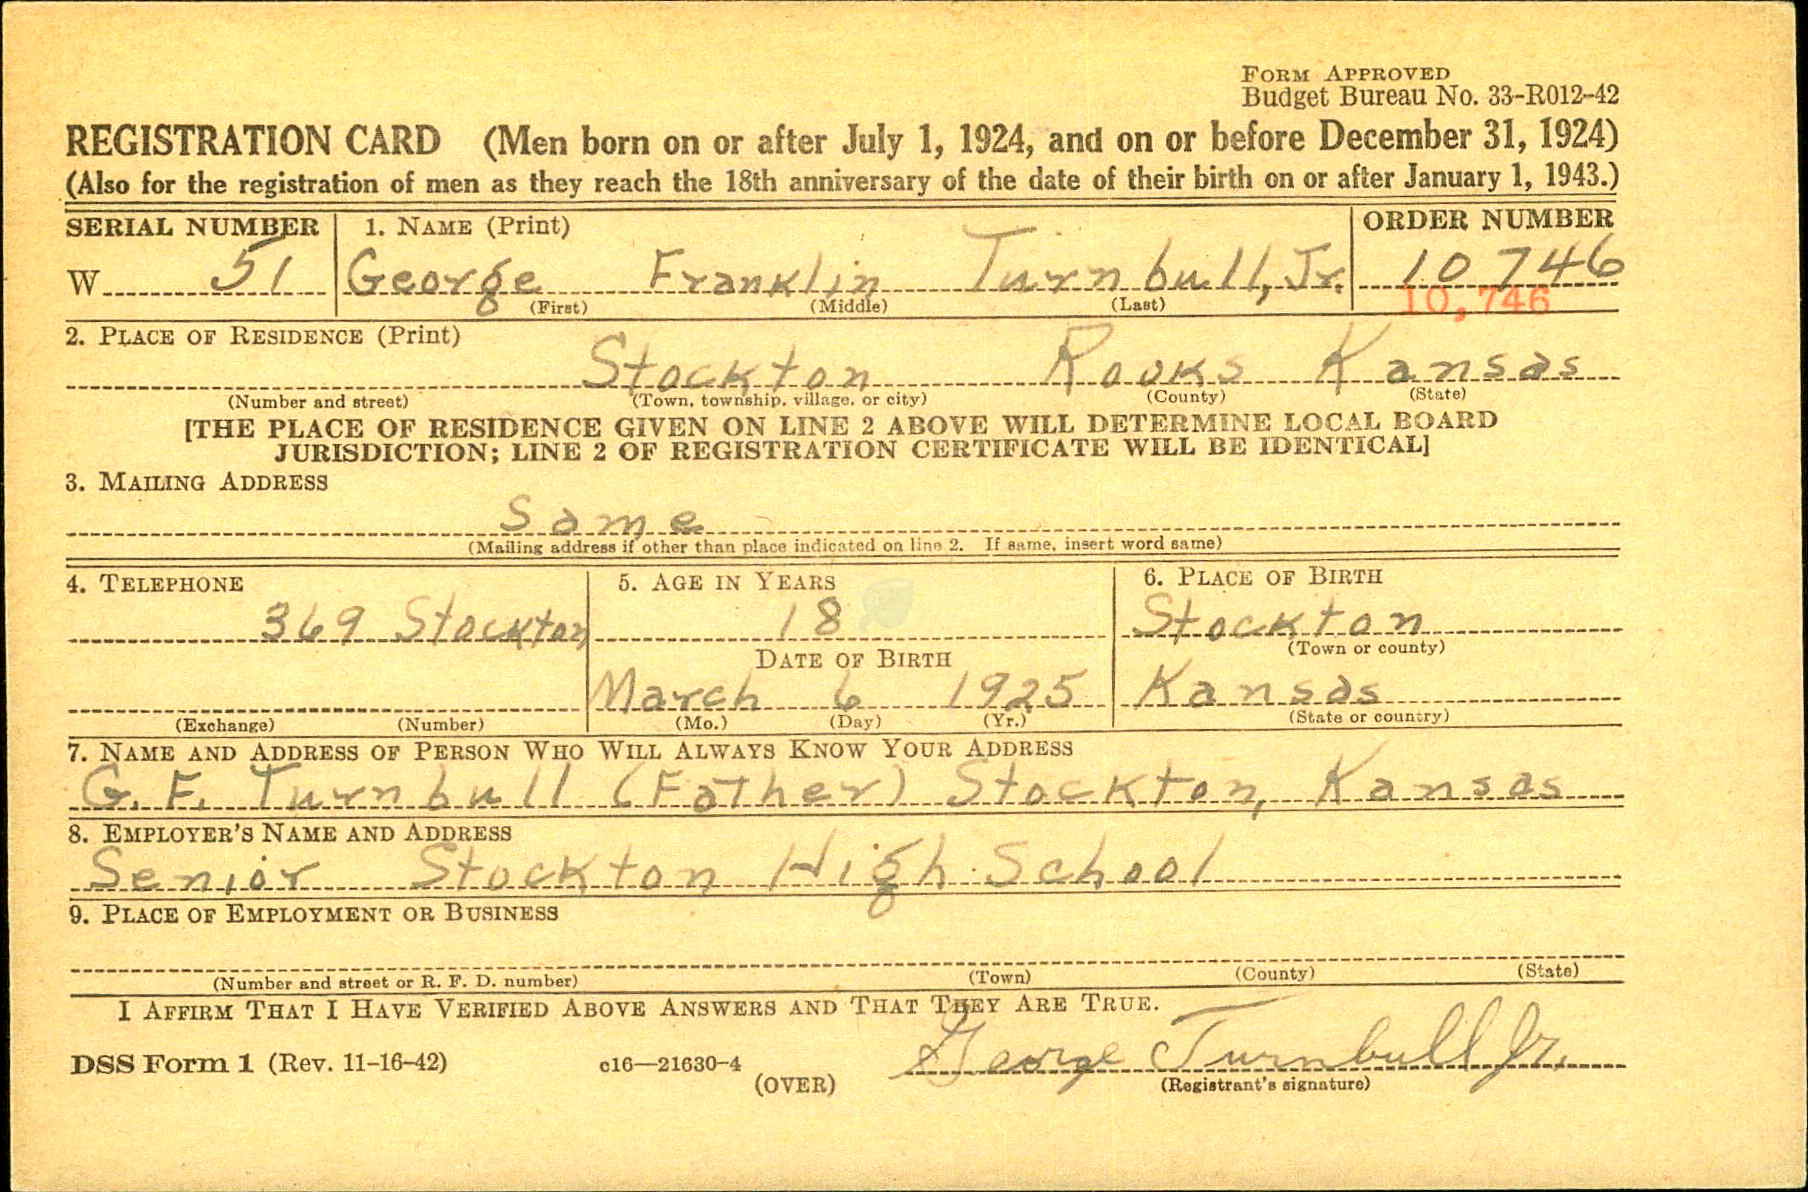 FORM APPROVED
Budget Bureau No. 33-R012-42
REGISTRATION CARD (Men born on or after July 1, 1924, and on or before December 31, 1924)
(Also for the registration of men as they reach the 18th anniversary of the date of their birth on or after January 1, 1943.)
SERIAL NUMBER 1. NAME (Print) ORDER NUMBER
W 51 George Franklin Turnbull, Jr. 10 746
(First) (Middle) (Last) 10,746
2. PLACE OF RESIDENCE (Print)
Stockton Rooks Kansas
(Number and street) (Town, township, village, or city) (County) (State)
[THE PLACE OF RESIDENCE GIVEN ON LINE 2 ABOVE WILL DETERMINE LOCAL BOARD
JURISDICTION; LINE 2 OF REGISTRATION CERTIFICATE WILL BE IDENTICAL]
3. MAILING ADDRESS
Same
(Mailing address if other than place indicated on line 2. If same, insert word same)
4. TELEPHONE 5. AGE IN YEARS 6. PLACE OF BIRTH
369 Stockton 18 Stockton
DATE OF BIRTH (Town or county)
March 6 1925 Kansas
(Exchange) (Number) (Mo.) (Day) (Yr.) (State or country)
7. NAME AND ADDRESS OF PERSON WHO WILL ALWAYS KNOW YOUR ADDRESS
G. F. Turnbull (Father) Stockton, Kansas
8. EMPLOYER'S NAME AND ADDRESS
Senior Stockton High School
9. PLACE OF EMPLOYMENT OR BUSINESS
(Number and street or R. F. D. number) (Town) (County) (State)
I AFFIRM THAT I HAVE VERIFIED ABOVE ANSWERS AND THAT THEY ARE TRUE.
DSS Form 1 (Rev. 11-16-42) c16—21630-4 George Turnbull Jr.
(OVER) (Registrant's signature)